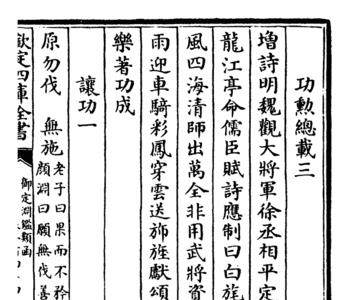 功勲總載三
増詩明魏觀大將軍徐丞相平定
龍江亭命儒臣賦詩應制曰白旄
風四海清師出萬全非用武將資
雨迎車騎彩鳳穿雲送斾旌獻頌
樂著功成
讓功一
原勿伐 無施 老子曰果而不矜
顔淵曰願無伐善
欽定四庫全書
御定淵鑑類函